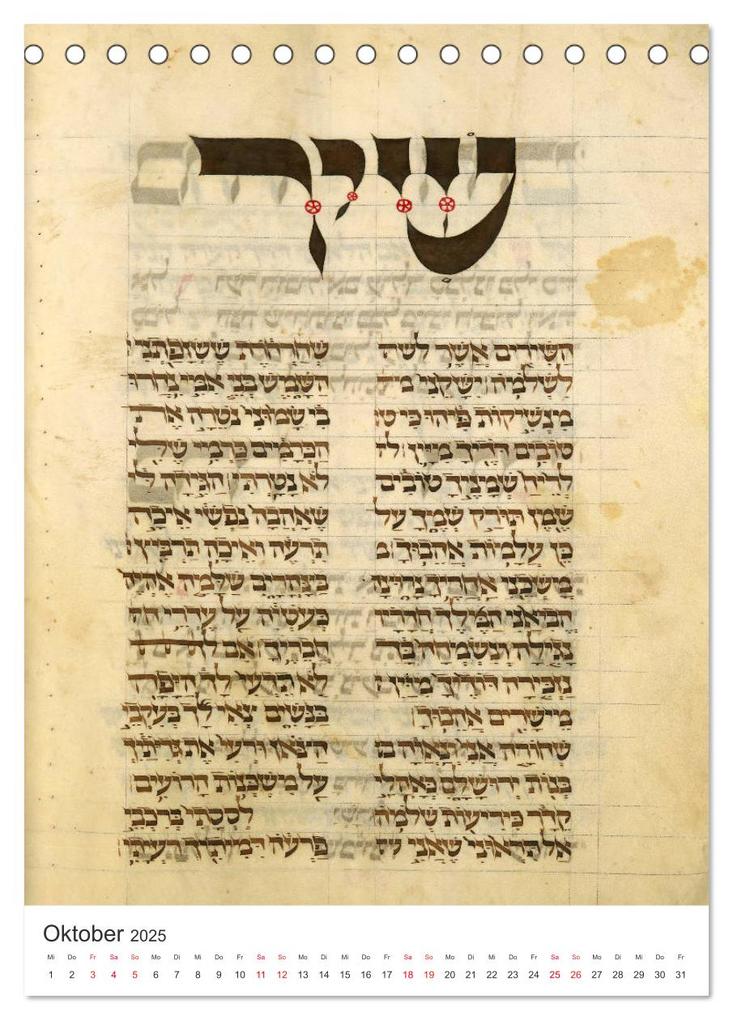 שיר
השירים אשר
לשלמה ישקני
מנשיקות פיהו כי
טובים דדיך מיין
לריח שמניך טובים
שמן תורק שמך על
כן עלמות אהבוך
משכני אחריך נרוצה
הביאני המלך חדריו
נגילה ונשמחה בך
נזכירה דדיך מיין
מישרים אהבוך
שחורה אני ונאוה
בנות ירושלם כאהלי
קדר כיריעות שלמה
אל תראוני שאני
שחרחרת ששזפתני
השמש בני אמי נחרו
בי שמוני נטרה את
הכרמים כרמי שלי
לא נטרתי הגידה לי
שאהבה נפשי איכה
תרעה איכה תרביץ
בצהרים שלמה אהיה
כעטיה על עדרי
חבריך אם
לא תדעי לך היפה
בנשים צאי לך בעקבי
הצאן ורעי את גדיתיך
על משכנות הרועים
לססתי ברכבי
פרעה דמיתיך רעיתי
Oktober 2025
Mi Do Fr Sa So Mo Di Mi Do Fr Sa So Mo Di Mi Do Fr Sa So Mo Di Mi Do Fr Sa So Mo Di Mi Do Fr
1 2 3 4 5 6 7 8 9 10 11 12 13 14 15 16 17 18 19 20 21 22 23 24 25 26 27 28 29 30 31